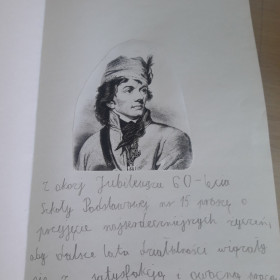 z okazji Jubileuszu 60-lecia
Szkoły Podstawowej nr 15 proszę o
przyjęcie najserdeczniejszych życzeń,
aby dalsze lata działalności wiązały
się z satysfakcją i owocną